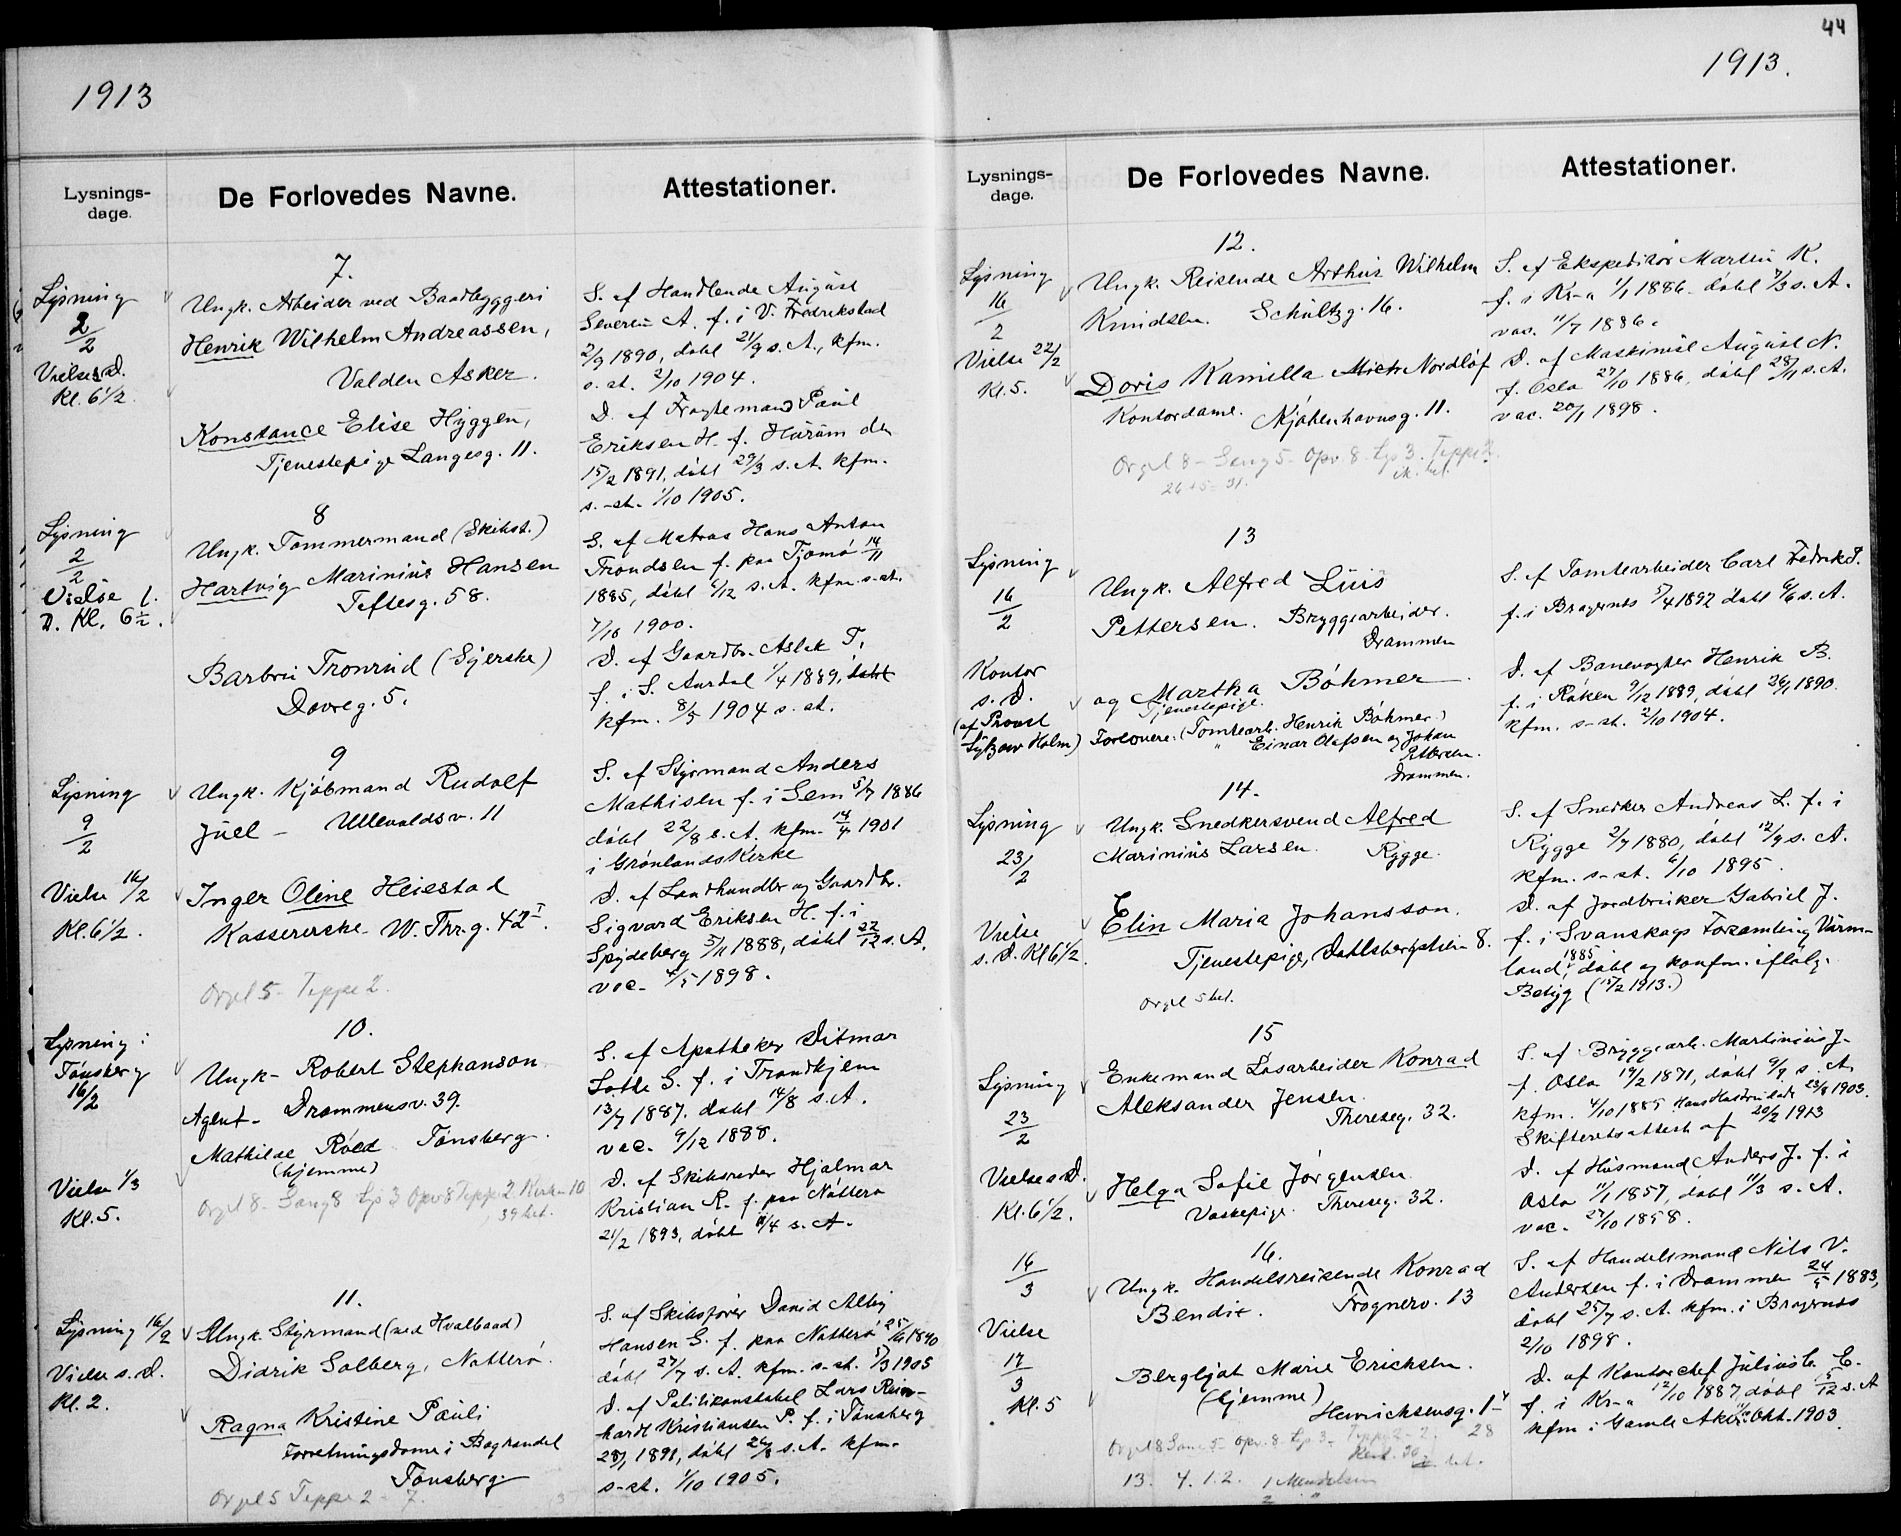 1913
Lysnings-
dage.
De Forlovedes Navne.
Attestationer.
7.
Lysning
2/2
Vielse s. D.
Kl. 6 1/2
Ungk. Arbeider ved Baadbyggeri
Henrik Wilhelm Andreassen,
Valden Asker.
S. af Handlende August
Severin A. f. i V. Fredrikstad
2/9 1890, døbt 21/9 s. A., kfm.
s. st. 2/10 1904.
Konstance Elise Hyggen,
Tjenestepige Langesg. 11.
D. af Fragtemand Paul
Eriksen H. f. Hurum den
15/2 1891, døbt 29/3 s. A. kfm.
s. st. 1/10 1905.
8
Lysning
2/2
Vielse
D. Kl. 6 1/2.
Ungk. Tømmermand (Skibst.)
Hartvig Marinius Hansen
Teftesg. 58.
S. af Matros Hans Anton
Trondsen f. paa Tjømø 14/11
1885, døbt 6/12 s. A. kfm. s. st.
7/10 1900.
Barbro Tronrud (Syerske)
Dovreg. 5.
D. af Gaardbr. Aslak T.
f. i S. Aurdal 1/4 1889, døbt
kfm. 8/5 1904 s. st.
9
Lysning
9/2
Ungk. Kjøbmand Rudolf
Juel - Ullevoldsv. 11
S. af Styrmand Anders
Mathisen f. i Sem 5/7 1886
døbt 22/8 s. A. kfm. 14/4 1901
i Grønlands Kirke
Vielse 16/2
Kl. 6 1/2.
Inger Oline Heiestad
Kassererske W. Thr. g. 42 I.
D. af Landhandler og Gaardbr.
Sigvard Eriksen H. f. i
Spydeberg 5/11 1888, døbt 22/12 s. A.
vac. 4/5 1898.
Orgel 5 - Teppe 2.
10.
Lysning i
Tønsberg
16/2
Ungk. Robert Stephanson
Agent - Drammensv. 39.
S. af Apotheker Ditmar
S. f. i Trondhjem
13/7 1887, døbt 14/8 s. A.
vac. 9/12 1888.
Vielse 1/3
Kl. 5.
Mathilde Røed Tønsberg.
(hjemme)
D. af Skibsreder Hjalmar
Kristian R. f. paa Nøtterø
21/2 1893, døbt 11/4 s. A.
Orgel 8 - Sang 8 Lys 3 Opv 8 Teppe 2 Kirken 10
39 bet.
11.
Lysning 16/2
Vielse s. D.
Kl. 2.
Ungk. Styrmand (ved Hvalbaad)
Didrik Solberg, Nøtterø.
S. af Skibsfører David Alby
Hansen S. f. paa Nøtterø 25/6 1890
døbt 27/7 s. A. kfm. s. st. 5/3 1905
Ragna Kristine Pauli
Forretningsdame i Boghandel
Tønsberg
D. af Politikonstabel Lars Rein-
hardt Kristiansen P. f. i Tønsberg
28/7 1891, døbt 26/8 s. A. kfm.
s. st. 1/10 1905.
Orgel 5 Teppe 2 - 7.
44
1913.
Lysnings-
dage.
De Forlovedes Navne.
Attestationer.
12.
Lysning
16/2
Vielse 22/2
Kl. 5.
Ungk. Reisende Arthur Wilhelm
Knudsen. Schultzg. 16.
S. af Ekspeditør Martin K.
f. i Kr-a 1/1 1886 døbt 7/3 s. A.
vac. 11/7 1886.
Doris Kamilla Nordløf
Kontordame. Kjøbenhavnsg. 11.
D. af Maskinist August N.
f. Oslo 27/10 1886, døbt 28/11 s. A.
vac. 20/1 1898.
Orgel 8 - Sang 5 - Opv. 8 - Lys 3. Teppe 2.
26 + 5 = 31.
13
Lysning
16/2
Ungk. Alfred Luis
Pettersen. Bryggearbeider.
Drammen
S. af Tomtearbeider Carl Fredrik P.
f. i Bragernes 5/4 1892 døbt 6/6 s. A.
Kontor
s. D.
(af Provst
Holm)
og Martha Bøhmer
Tjenestepige.
Forlovere: (Tomtearb. Henrik Bøhmer)
" Einar Olafsen og Johan
Pettersen.
Drammen.
D. af Banevogter Henrik B.
f. i Røken 9/12 1889, døbt 26/1 1890.
kfm. s. st. 2/10 1904.
14.
Lysning
23/2
Ungk. Snedkersvend Alfred
Marinius Larsen. Rygge.
S. af Snedker Andreas L. f. i
Rygge 2/7 1880, døbt 12/9 s. A.
kfm. s. st. 6/10 1895.
Vielse
s. D. Kl 6 1/2.
Elin Maria Johansson.
Tjenestepige, Dahlsbergstien 8.
D. af Jordbruker Gabriel J.
f. i Svanskogs Forsamling Värm-
land, 1885 døbt og konfm. ifølge
Betyg (15/2 1913.)
Orgel 5 bet.
15
Lysning
23/2
Enkemand Løsarbeider Konrad
Aleksander Jensen.
Thereseg. 32.
S. af Bryggearb. Martinius J.
f. Oslo 19/2 1871, døbt 9/9 s. A.
kfm. 4/10 1885 Hans Hustru død 23/8 1903.
Skifteretsattest af 20/2 1913
Vielse s D.
Kl. 6 1/2.
Helga Sofie Jørgensen
Vaskepige. Thereseg. 32.
D. af Husmand Anders J. f. i
Oslo 11/1 1857, døbt 11/3 s. A.
vac. 27/10 1858.
16.
16/3
Ungk. Handelsreisende Konrad
Bendix. Frognerv. 13
S. af Handelsmand Nils V.
Andersen f. i Drammen 24/5 1883,
døbt 25/7 s. A. kfm. i Bragernes
2/10 1898.
Vielse
17/3
Kl. 5
Bergljot Marie Erichsen.
(hjemme)
Henrichsensg. 1
D. af Kontorchef Julius C. E.
f. i Kr-a 12/10 1887, døbt 5/12 s. A
kfm. i Gamle Aker Okt. 1903.
Orgel 8 Sang 5 - Opv. 8 - Lys 3 - Teppe 2 - 2. 28
13. 4. 1. 2.